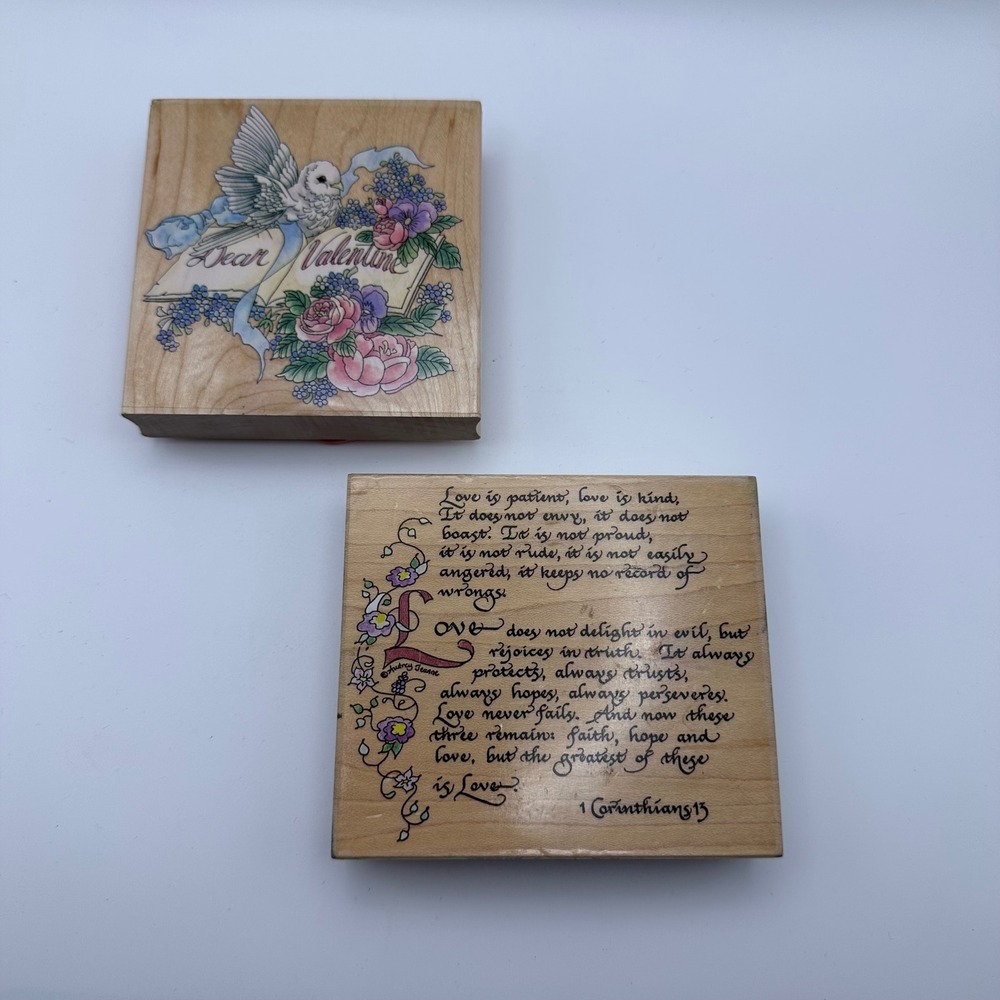 Dear Valentine
Love is patient, love is kind,
It does not envy, it does not
boast. It is not proud,
it is not rude, it is not easily
angered, it keeps no record of
wrongs.
Love does not delight in evil, but
rejoices in truth. It always
protects, always trusts,
©Audrey Jeanne
always hopes, always perseveres.
Love never fails. And now these
three remain: faith, hope and
love, but the greatest of these
is Love.
1 Corinthians 13